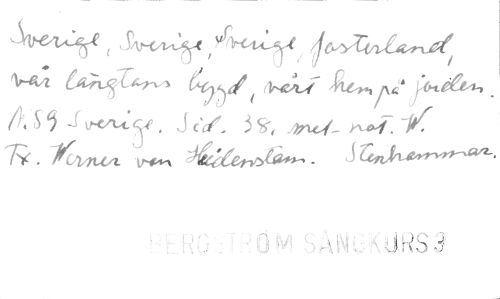 Sverige, Sverige, Sverige, fosterland,
vår längtans bygd, vårt hem på jorden.
N. 59 Sverige. Sid. 38. mel-not. W.
Tx. Werner von Heidenstam. Stenhammar.
BERGSTRÖM SÅNGKURS 3